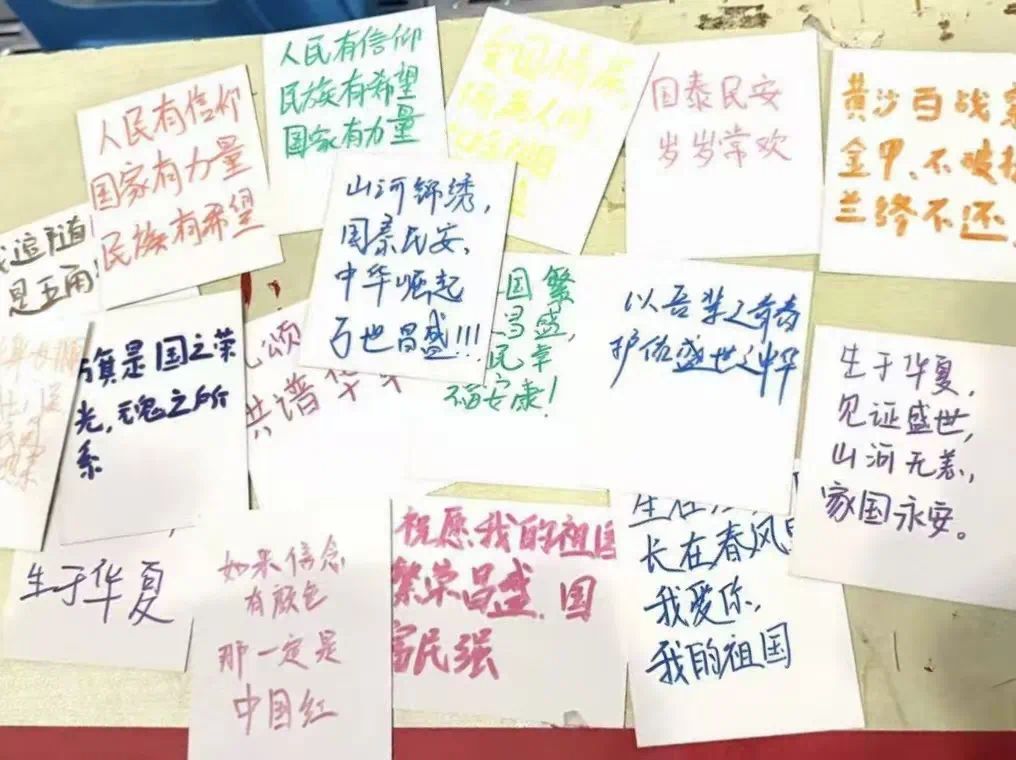 人民有信仰
民族有希望
国家有力量
人民有信仰
国家有力量
民族有希望
国泰民安
岁岁常欢
黄沙百战穿
金甲、不破楼
兰终不还
山河锦绣，
国泰民安，
中华崛起
万世昌盛!!!
追随
是五角
旗是国之荣
光，魂之所
系
颂
共谱华
国繁
昌盛，
民幸
福安康!
以吾辈之青春
护佑盛世之中华
生于华夏，
见证盛世，
山河无恙，
家国永安。
生于华夏
如果信念
有颜色
那一定是
中国红
祝愿我的祖国
繁荣昌盛.国
富民强
生在
长在春风
我爱你，
我的祖国